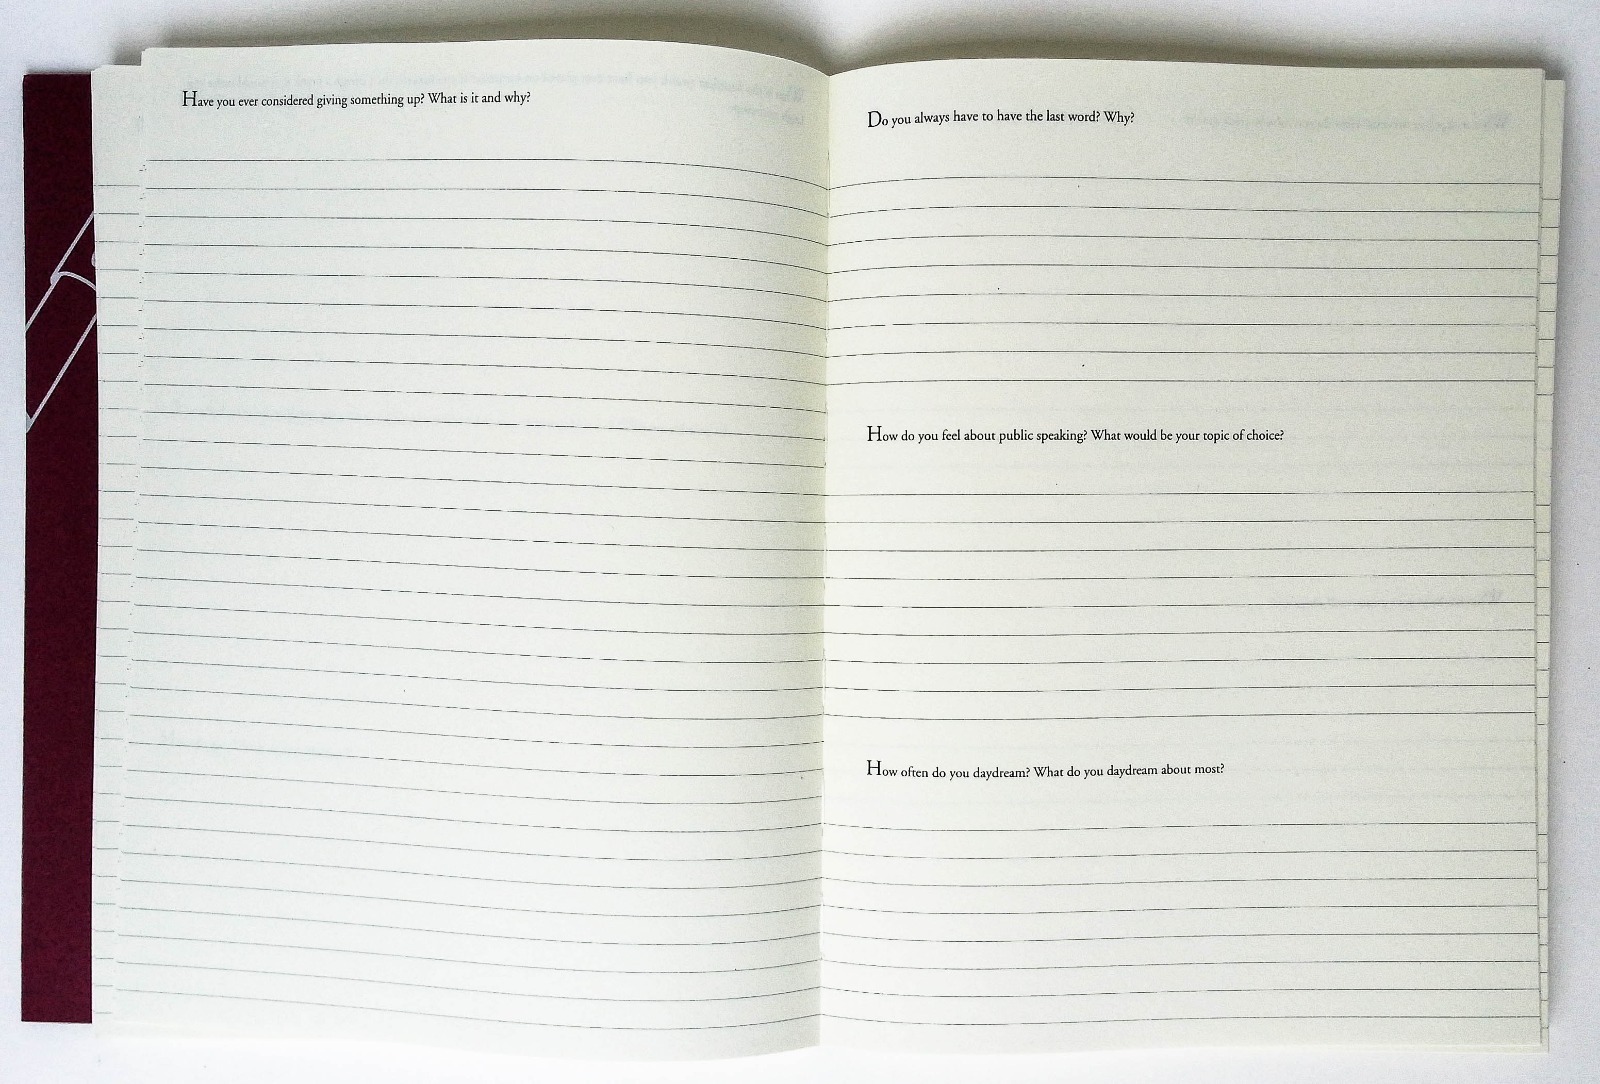 Have you ever considered giving something up? What is it and why?
Do you always have to have the last word? Why?
How do you feel about public speaking? What would be your topic of choice?
How often do you daydream? What do you daydream about most?